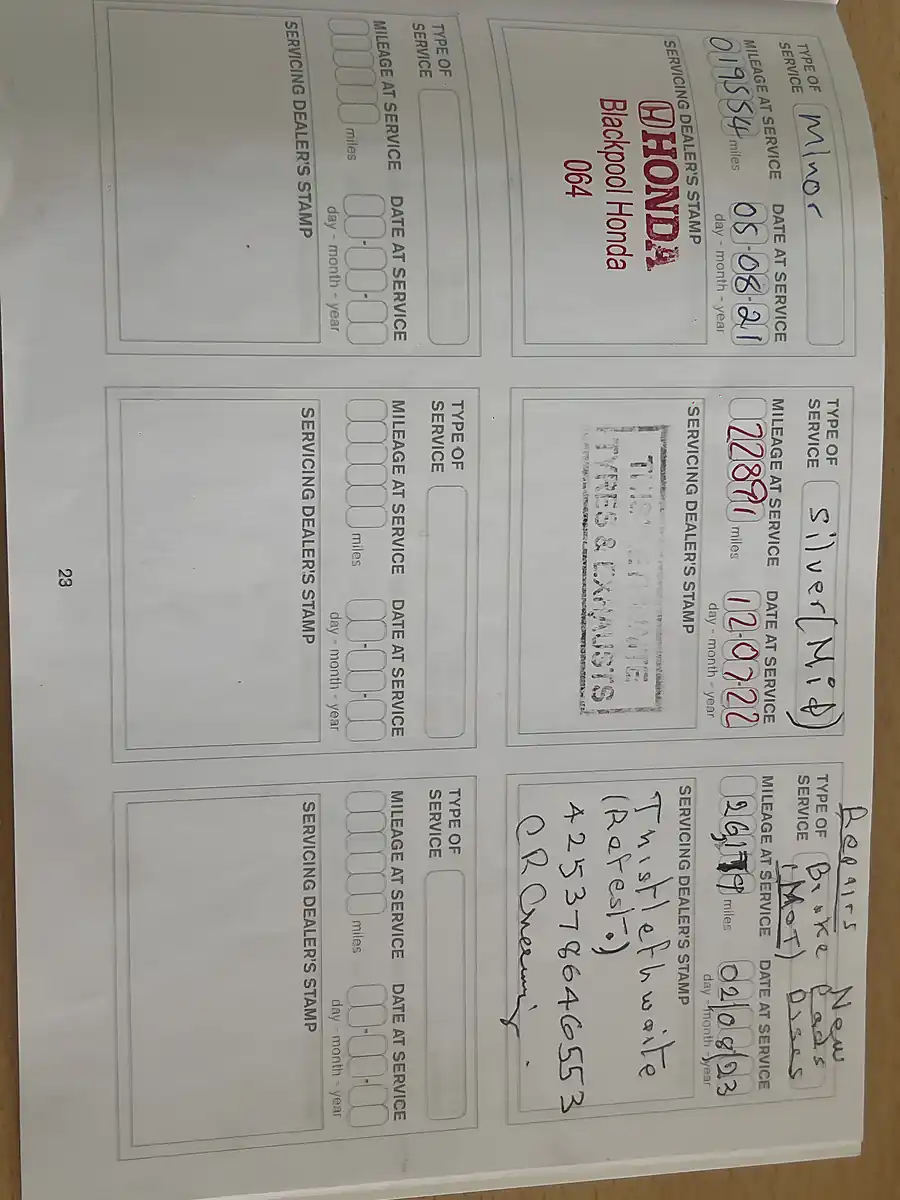 TYPE OF
SERVICE
Minor
MILEAGE AT SERVICE
DATE AT SERVICE
019554 miles
05-08-21
day - month - year
SERVICING DEALER'S STAMP
HONDA
Blackpool Honda
064
TYPE OF
SERVICE
silver (Mid)
MILEAGE AT SERVICE
DATE AT SERVICE
22891 miles
12-07-22
day - month - year
SERVICING DEALER'S STAMP
TYRES & EXHAUSTS
Repairs New
TYPE OF
SERVICE
Brake Pads
(MOT) Discs
MILEAGE AT SERVICE
DATE AT SERVICE
miles
02/08/23
day - month - year
SERVICING DEALER'S STAMP
Thistlethwaite
(Retest.)
425378646553
TYPE OF
SERVICE
MILEAGE AT SERVICE
DATE AT SERVICE
miles
day - month - year
SERVICING DEALER'S STAMP
TYPE OF
SERVICE
MILEAGE AT SERVICE
DATE AT SERVICE
miles
day - month - year
SERVICING DEALER'S STAMP
TYPE OF
SERVICE
MILEAGE AT SERVICE
DATE AT SERVICE
miles
day - month - year
SERVICING DEALER'S STAMP
23